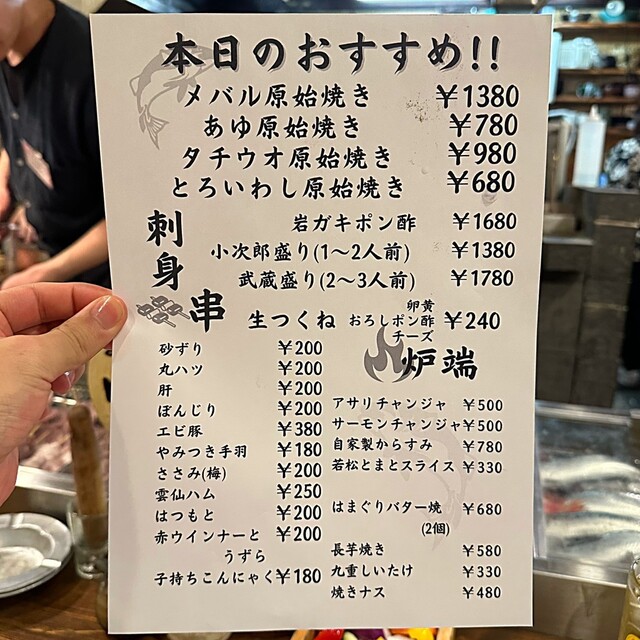 本日のおすすめ!!
メバル原始焼き ¥1380
あゆ原始焼き ¥780
タチウオ原始焼き ¥980
とろいわし原始焼き ¥680
刺身
岩ガキポン酢 ¥1680
小次郎盛り(1〜2人前) ¥1380
武蔵盛り(2〜3人前) ¥1780
串
生つくね 卵黄 おろしポン酢 チーズ ¥240
砂ずり ¥200
丸ハツ ¥200
肝 ¥200
ぼんじり ¥200
エビ豚 ¥380
やみつき手羽 ¥180
ささみ(梅) ¥200
雲仙ハム ¥250
はつもと ¥200
赤ウインナーと ¥200
うずら
子持ちこんにゃく ¥180
炉端
アサリチャンジャ ¥500
サーモンチャンジャ ¥500
自家製からすみ ¥780
若松とまとスライス ¥330
はまぐりバター焼 ¥680
(2個)
長芋焼き ¥580
九重しいたけ ¥330
焼きナス ¥480